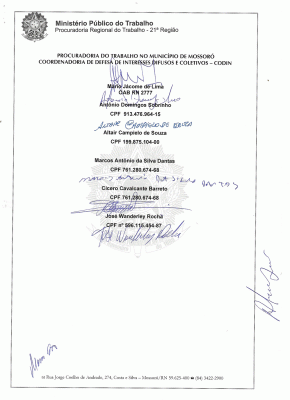 Ministério Público do Trabalho
Procuradoria Regional do Trabalho - 21ª Região
PROCURADORIA DO TRABALHO NO MUNICÍPIO DE MOSSORÓ
COORDENADORIA DE DEFESA DE INTERESSES DIFUSOS E COLETIVOS – CODIN
Mário Jácome de Lima
OAB RN 2777
Antônio Domingos Sobrinho
CPF 913.476.964-15
Altair Campielo de Souza
CPF 199.875.104-00
Marcos Antônio da Silva Dantas
CPF 761.280.674-68
Cícero Cavalcante Barreto
CPF 761.280.674-68
José Wanderley Rocha
CPF nº 596.115.454-87
José Wanderley Rocha
Rua Jorge Coelho de Andrade, 274, Costa e Silva – Mossoró/RN 59.625-400 (84) 3422-2906